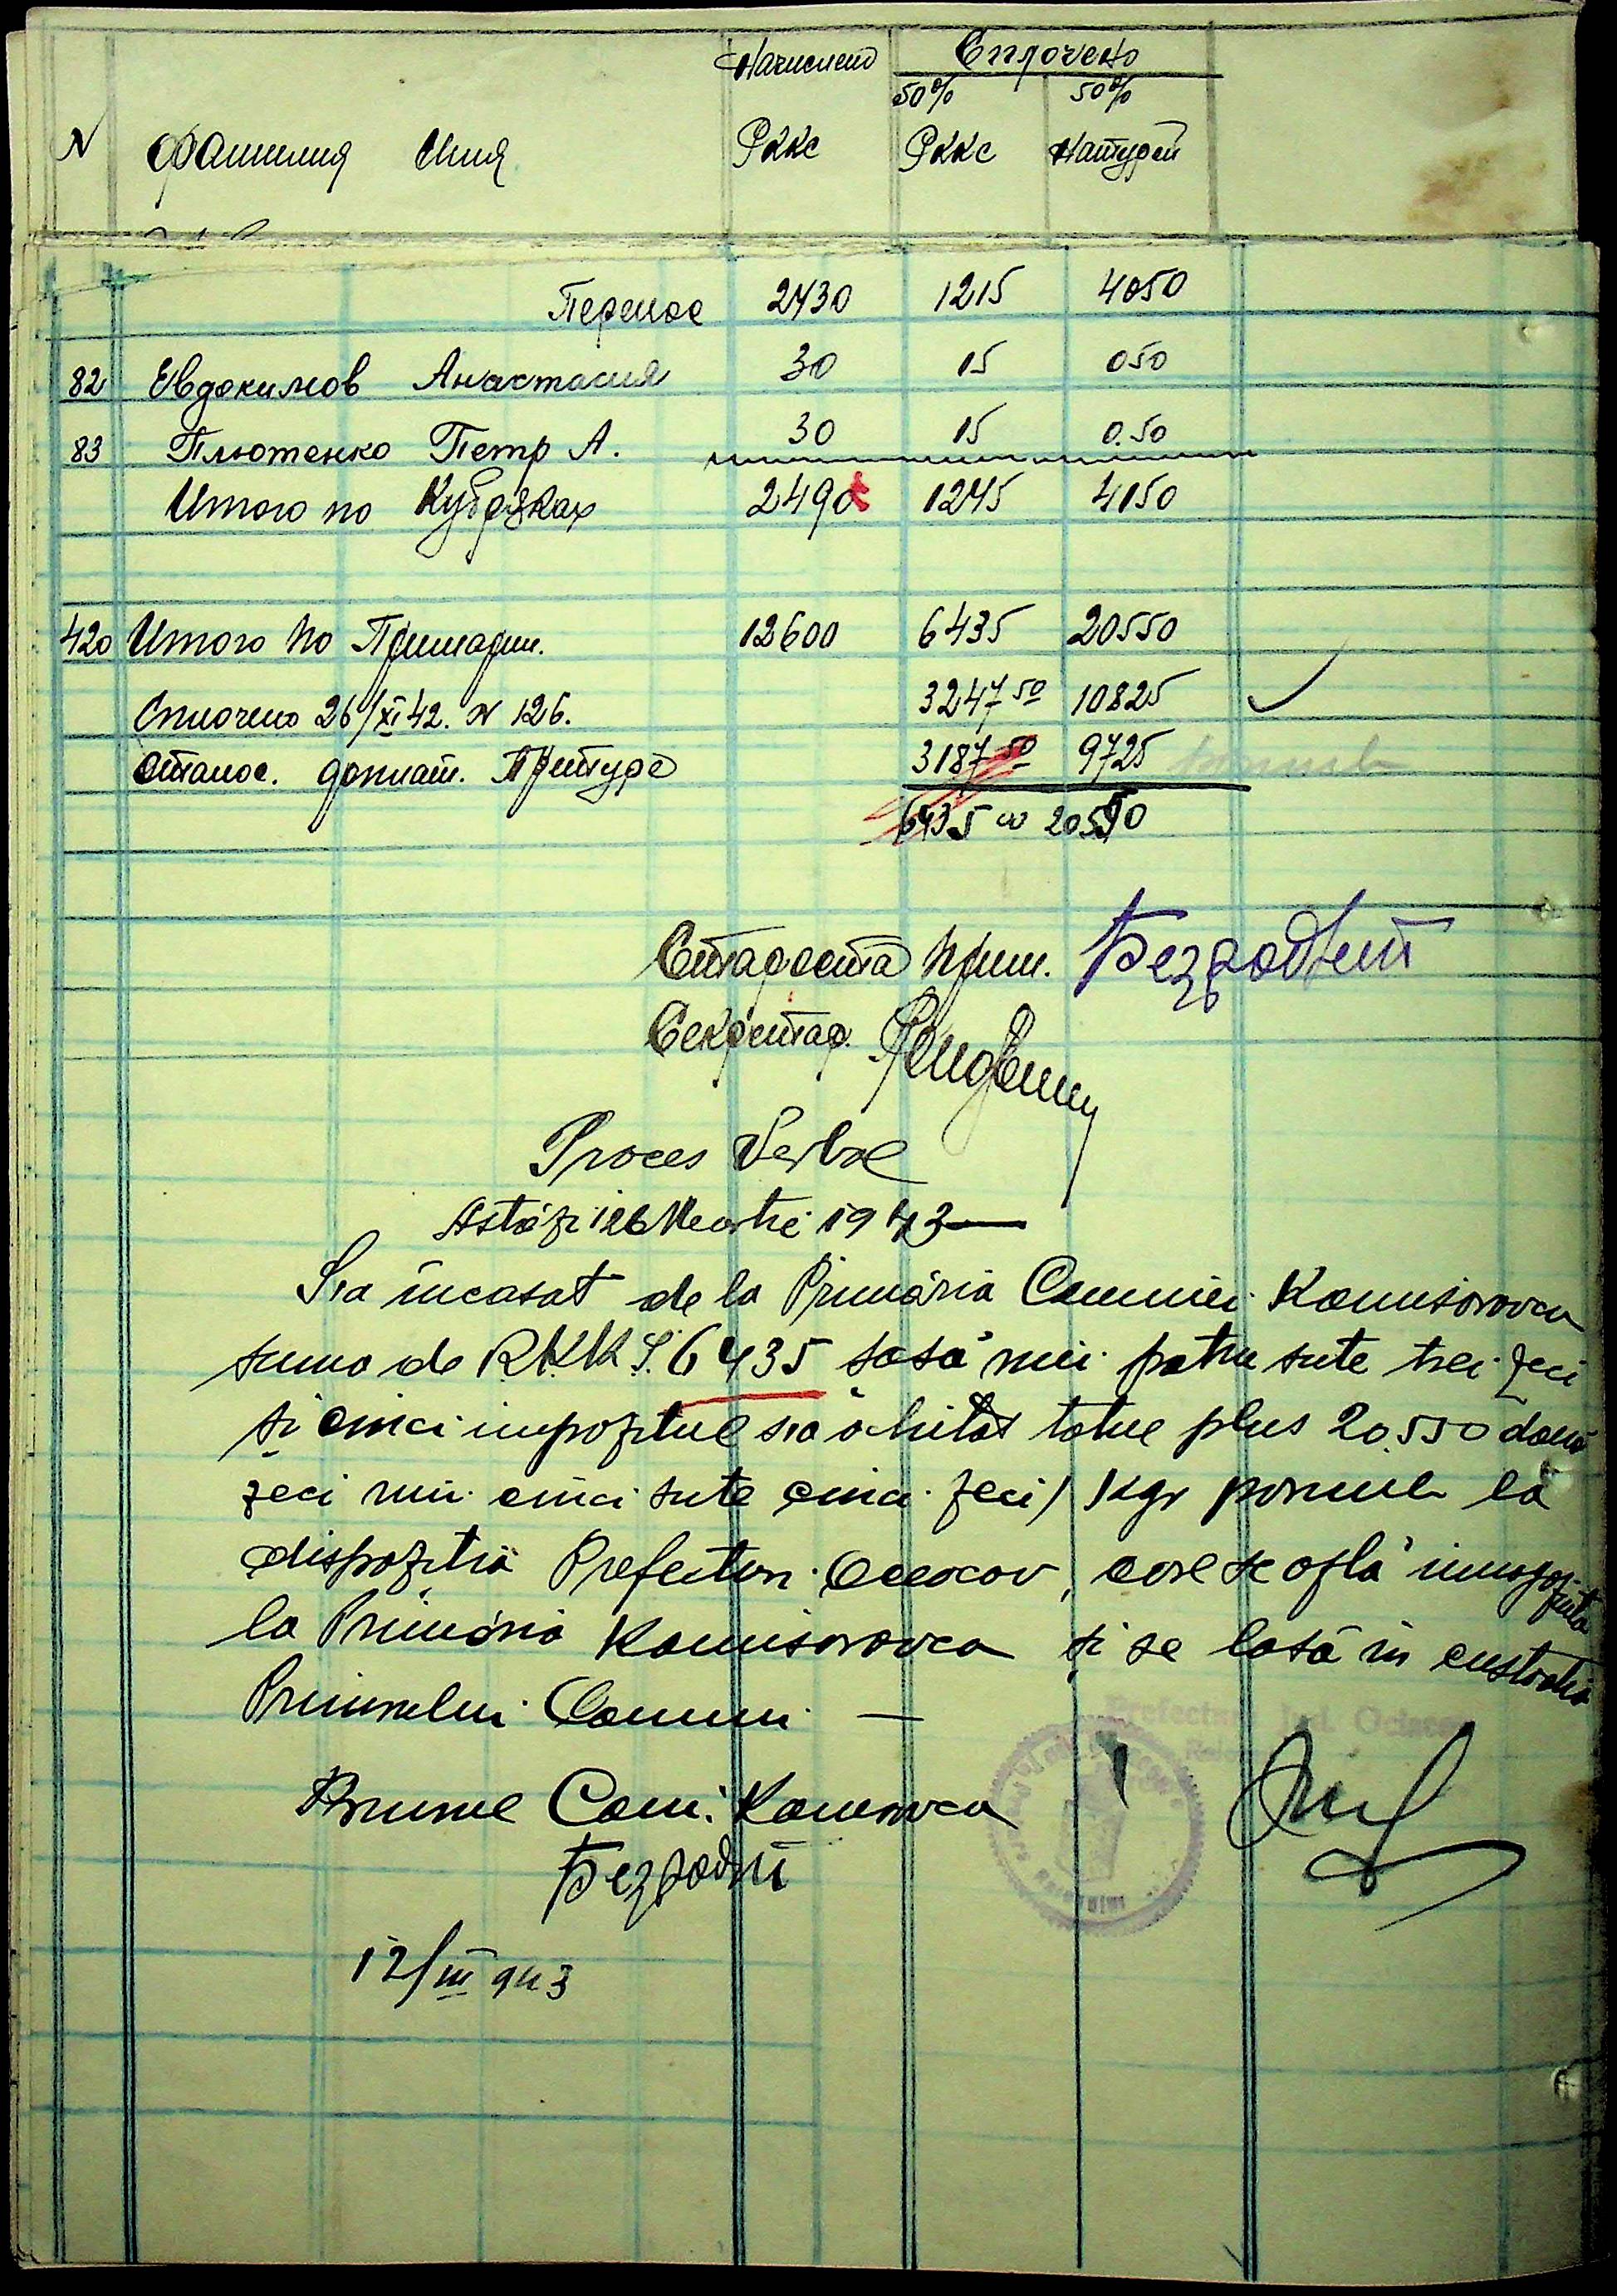 Начислено Сплочено
50% 50%
N Фамилия Имя Рккс Рккс Натурой
Перенос 2430 1215 4050
82 Евдокимов Анастасия 30 15 050
83 Плютенко Петр А. 30 15 0.50
Итого по Кубряках 2490 1245 4150
420 Итого по Примарии. 12600 6435 20550
Сплочено 26/XI 42. N 126. 3247 50 10825
Осталос. доплат. Претуре 3187 50 9725
6435 00 20550
Староста Прим. Безродний
Секретар.
Proces Verbal
Astăzi 26 Martie 1943
S'a încasat de la Primăria Comunei Komisarovca
suma de R.K.K.S. 6435 șasă mii patru sute trei zeci
și cinci impozitul s'a achitat totul plus 20.550 două
zeci mii cinci sute cinci zeci) Kgr porumb la
dispoziția Prefecturi Oceacov, care se află înmagazinată
la Primăria Komisarovca și se lasă în custodia
Primarului Comuni. —
Prefectura Jud. Oceacov
Primar Com. Komisarovca
Безродній
12/III 943